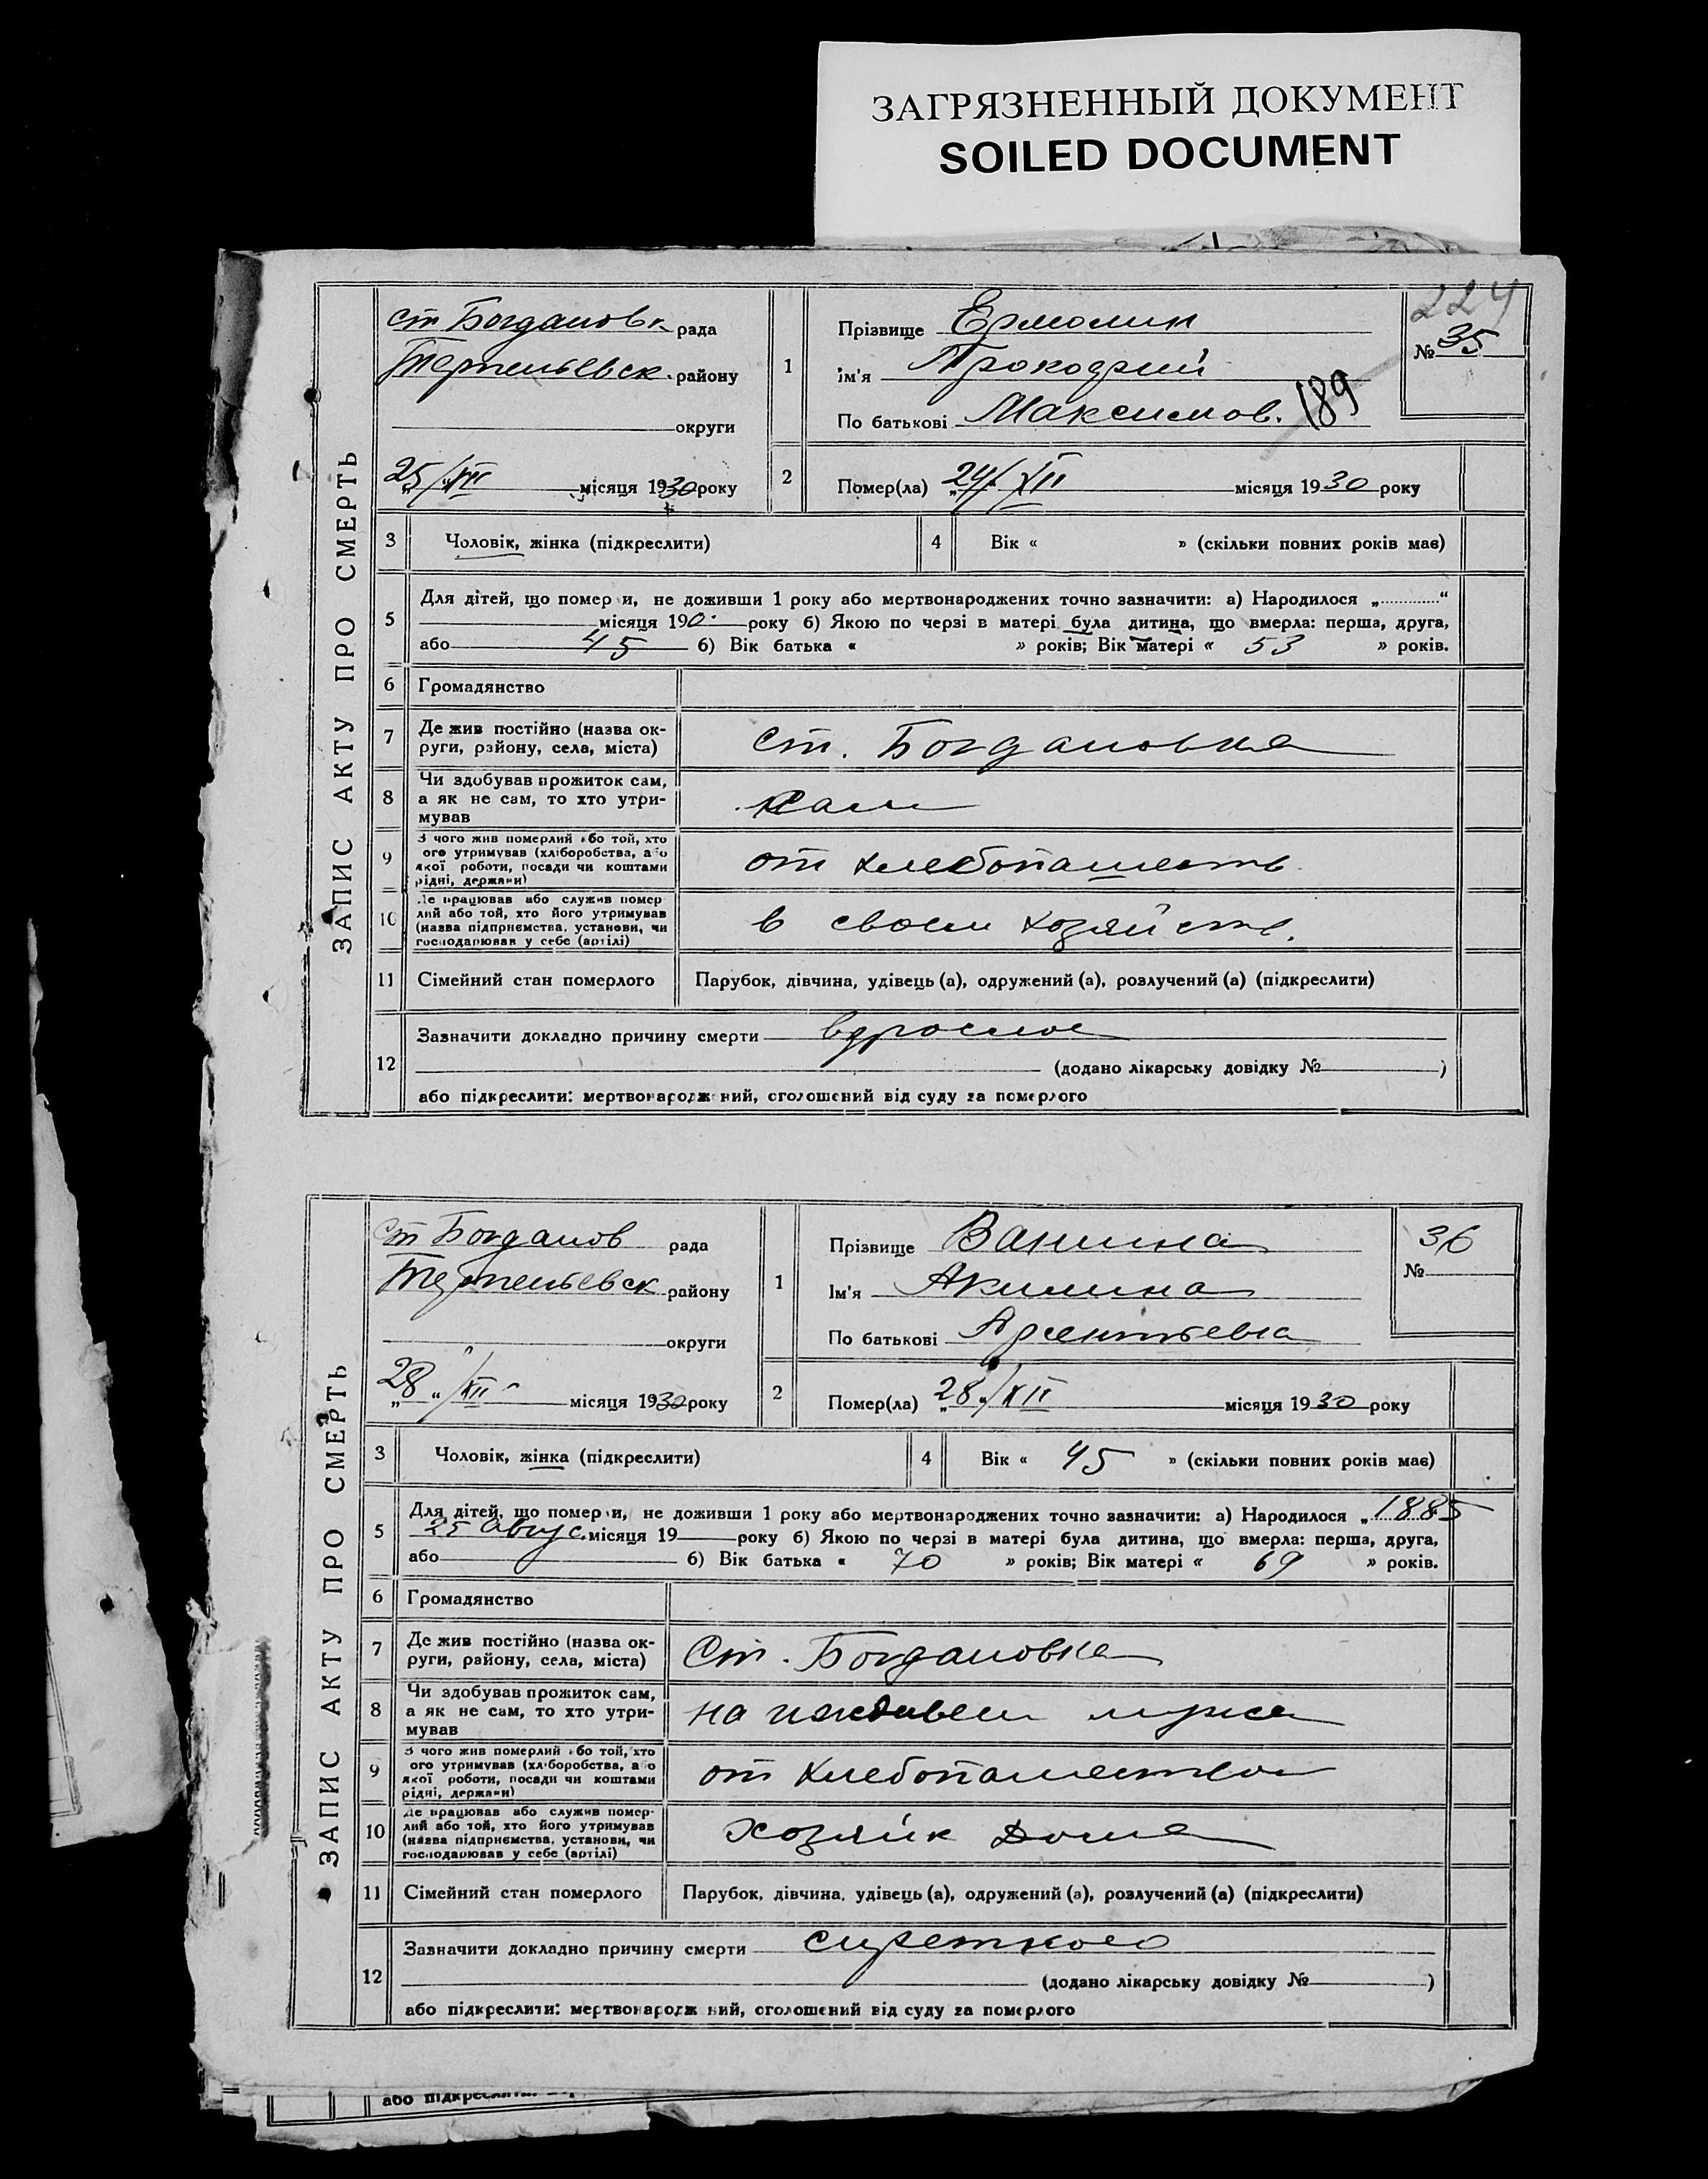 ЗАГРЯЗНЕННЫЙ ДОКУМЕНТ
SOILED DOCUMENT
224
ЗАПИС АКТУ ПРО СМЕРТЬ
ст Богдановк рада
Терпеньевск. району
округи
25/XII місяця 1930 року
1
Прізвище Ермолин
ім'я Прокофий
По батькові Максимов. 189
№ 35
2 Помер(ла) „24/XII місяця 1930 року
3 Чоловік, жінка (підкреслити)
4 Вік « » (скільки повних років має)
5 Для дітей, що помер и, не доживши 1 року або мертвонароджених точно зазначити: а) Народилося „............“
місяця 190 року б) Якою по черзі в матері була дитина, що вмерла: перша, друга,
або 45 б) Вік батька « » років; Вік матері « 53 » років.
6 Громадянство
7 Де жив постійно (назва ок-
руги, району, села, міста)
ст. Богдановка
8 Чи здобував прожиток сам,
а як не сам, то хто утри-
мував
сам
9 З чого жив померлий або той, хто
ого утримував (хліборобства, або
якої роботи, посади чи коштами
рідні, держави)
от хлебопашеств
10 Де працював або служив помер
лий або той, хто його утримував
(назва підприємства, установи, чи
господарював у себе (артілі)
в своем хозяйств.
11 Сімейний стан померлого
Парубок, дівчина, удівець (а), одружений (а), розлучений (а) (підкреслити)
12 Зазначити докладно причину смерти
(додано лікарську довідку № )
або підкреслити: мертвонародж ний, оголошений від суду за померлого
ЗАПИС АКТУ ПРО СМЕРТЬ
ст Богданов рада
Терпеньевск району
округи
„28“/XII місяця 1930 року
1
Прізвище Ванина
Ім'я Акилина
По батькові Арсентьевна
36
№
2 Помер(ла) „28“/XII місяця 1930 року
3 Чоловік, жінка (підкреслити)
4 Вік « 45 » (скільки повних років має)
5 Для дітей, що помер и, не доживши 1 року або мертвонароджених точно зазначити: а) Народилося „1885
25 август. місяця 19 року б) Якою по черзі в матері була дитина, що вмерла: перша, друга,
або б) Вік батька « 70 » років; Вік матері « 69 » років.
6 Громадянство
7 Де жив постійно (назва ок-
руги, району, села, міста)
Ст. Богдановка
8 Чи здобував прожиток сам,
а як не сам, то хто утри-
мував
на иждивен мужа
9 З чого жив померлий або той, хто
ого утримував (хліборобства, або
якої роботи, посади чи коштами
рідні, держави)
от хлебопашества
10 Де працював або служив помер-
лий або той, хто його утримував
(назва підприємства, установи, чи
господарював у себе (артілі)
Хозяйк Дома
11 Сімейний стан померлого
Парубок, дівчина, удівець (а), одружений (а), розлучений (а) (підкреслити)
12 Зазначити докладно причину смерти
(додано лікарську довідку № )
або підкреслити: мертвонародж ний, оголошений від суду за померлого
або підкреслити: